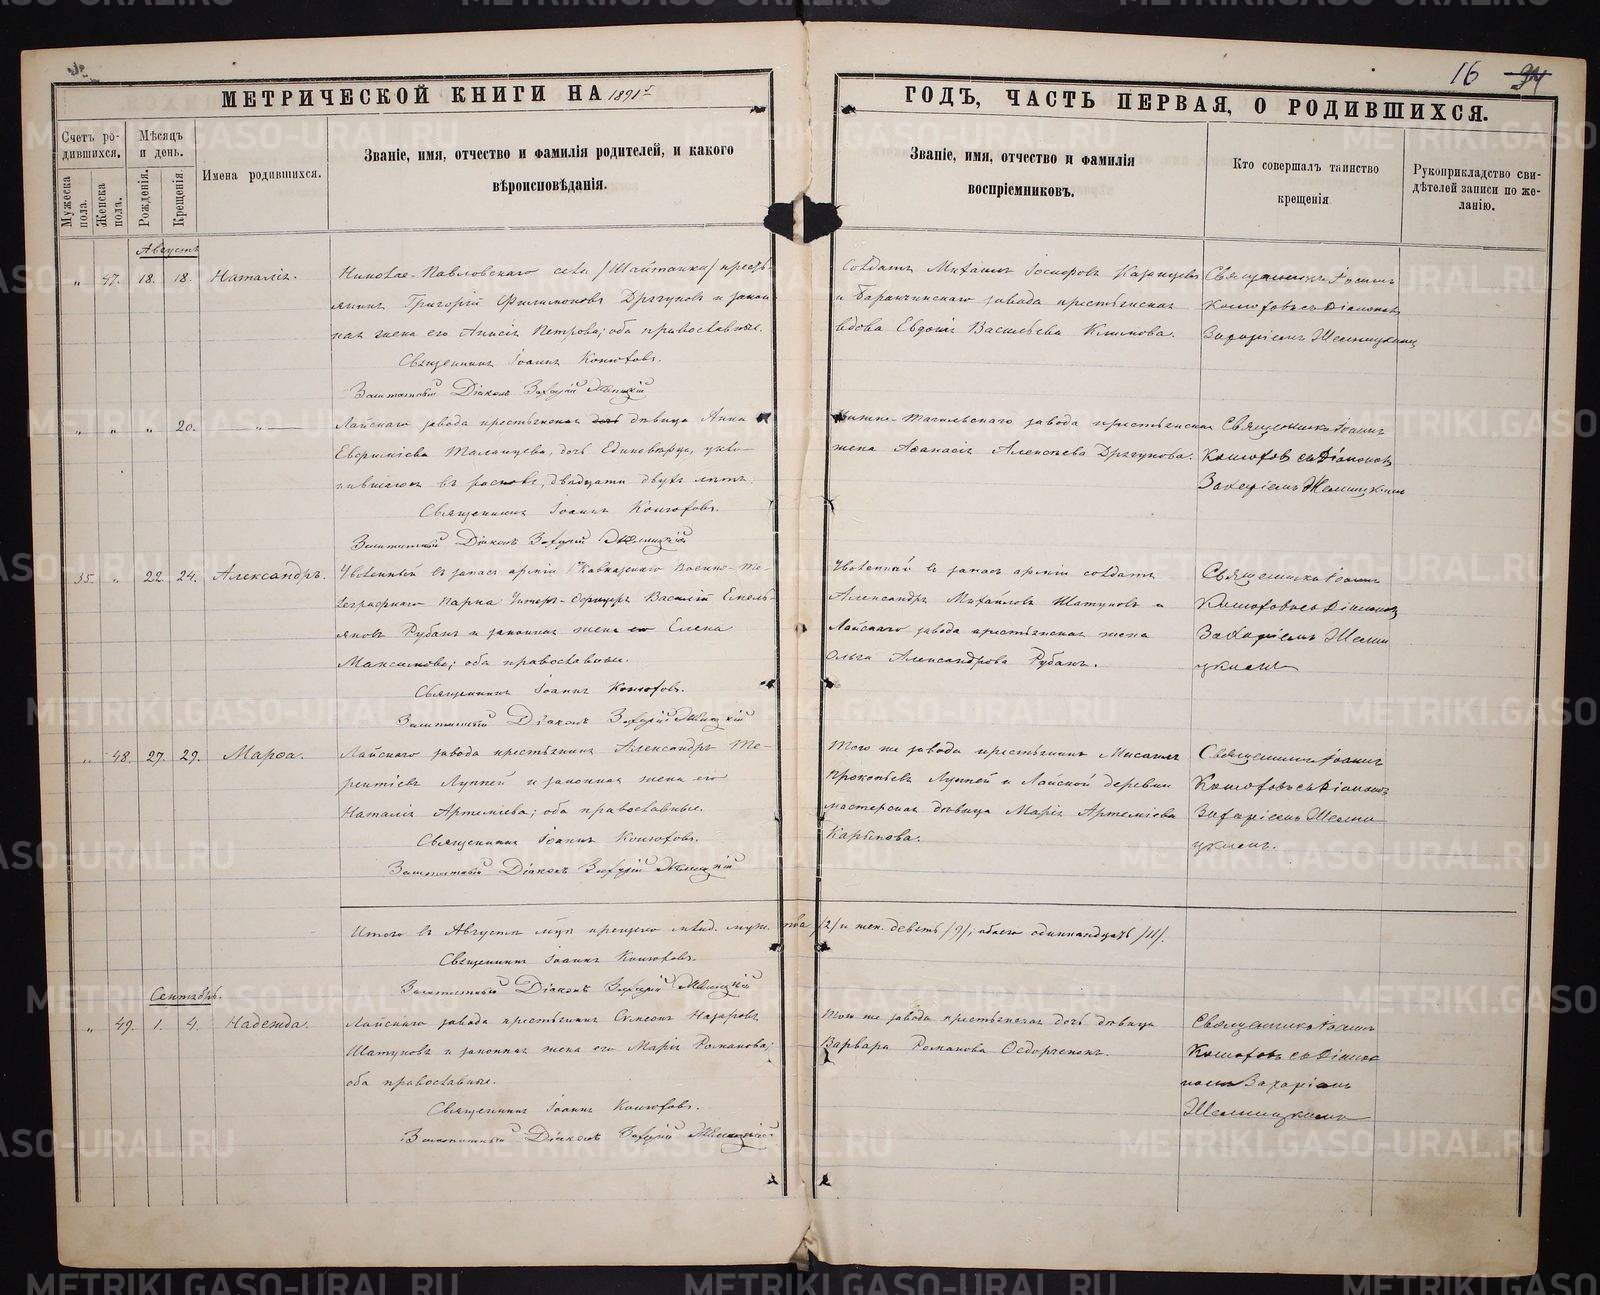 16 94
МЕТРИЧЕСКОЙ КНИГИ НА 1891й
ГОДЪ, ЧАСТЬ ПЕРВАЯ, О РОДИВШИХСЯ.
Счетъ родившихся.
Мужеска пола.
Женска пола.
Мѣсяцъ и день.
Рожденія.
Крещенія.
Имена родившихся.
Званіе, имя, отчество и фамилія родителей, и какого
вѣроисповѣданія.
Званіе, имя, отчество и фамилія
воспріемниковъ.
Кто совершалъ таинство
крещенія
Рукоприкладство сви-
дѣтелей записи по же-
ланію.
Августъ
" 47. 18. 18. Наталія.
Николае-Павловскаго села /Шайтанки/ кресть-
янинъ Григорій Филимоновъ Дрягуновъ и закон-
ная жена его Анисія Петрова; оба православные.
Священникъ Іоаннъ Конюховъ.
Заштатный Діаконъ Захарій
Солдатъ Михаилъ Казанцевъ
и Баранчинскаго завода крестьянская
вдова Евдокія Васильева Климова.
Священникъ Іоаннъ
Конюховъ съ Діакономъ
Захаріемъ
" " " 20. — " —
Лайскаго завода крестьянская дочь дѣвица Анна
Талацкова, дочь Единовѣрца,
въ расколѣ, двадцати двухъ лѣтъ.
Священникъ Іоаннъ Конюховъ.
Заштатный Діаконъ Захарій
Нижне-Тагильскаго завода крестьянская
жена Аѳанасія Алексѣева Дрягунова.
Священникъ Іоаннъ
Конюховъ съ Діакономъ
Захаріемъ
35. " 22. 24. Александръ.
Уволенный въ запасъ арміи Кавказскаго Военно-Те-
леграфнаго Парка Унтеръ-Офицеръ Василій Емель-
яновъ Рубанъ и законная жена его Елена
Максимова; оба православные.
Священникъ Іоаннъ Конюховъ.
Заштатный Діаконъ Захарій
Уволенный въ запасъ арміи солдатъ
Александръ Михайловъ Шатуновъ и
Лайскаго завода крестьянская жена
Ольга Александрова Рубанъ.
Священникъ Іоаннъ
Конюховъ съ Діакономъ
Захаріемъ
" 48. 27. 29. Марѳа.
Лайскаго завода крестьянинъ Александръ Те-
рентіевъ Луппей и законная жена его
Наталія Артеміева; оба православные.
Священникъ Іоаннъ Конюховъ.
Заштатный Діаконъ Захарій
Того же завода крестьянинъ Мисаилъ
Прокопьевъ Луппей и Лайской деревни
мастерская дѣвица Марія Артеміева
Карпкова.
Священникъ Іоаннъ
Конюховъ съ Діакономъ
Захаріемъ
Итого въ Августѣ муж. пола /2/ и жен. девять /9/; обоего одиннадцать /11/.
Священникъ Іоаннъ Конюховъ.
Заштатный Діаконъ Захарій
Сентябрь.
" 49. 1. 4. Надежда.
Лайскаго завода крестьянинъ Сѵмеонъ Назаровъ
Шатуновъ и законная жена его Марія Романова;
оба православные.
Священникъ Іоаннъ Конюховъ.
Заштатный Діаконъ Захарій
Того же завода крестьянская дочь дѣвица
Варвара Романова
Священникъ Іоаннъ
Конюховъ съ Діако-
номъ Захаріемъ
METRIKI.GASO-URAL.RU